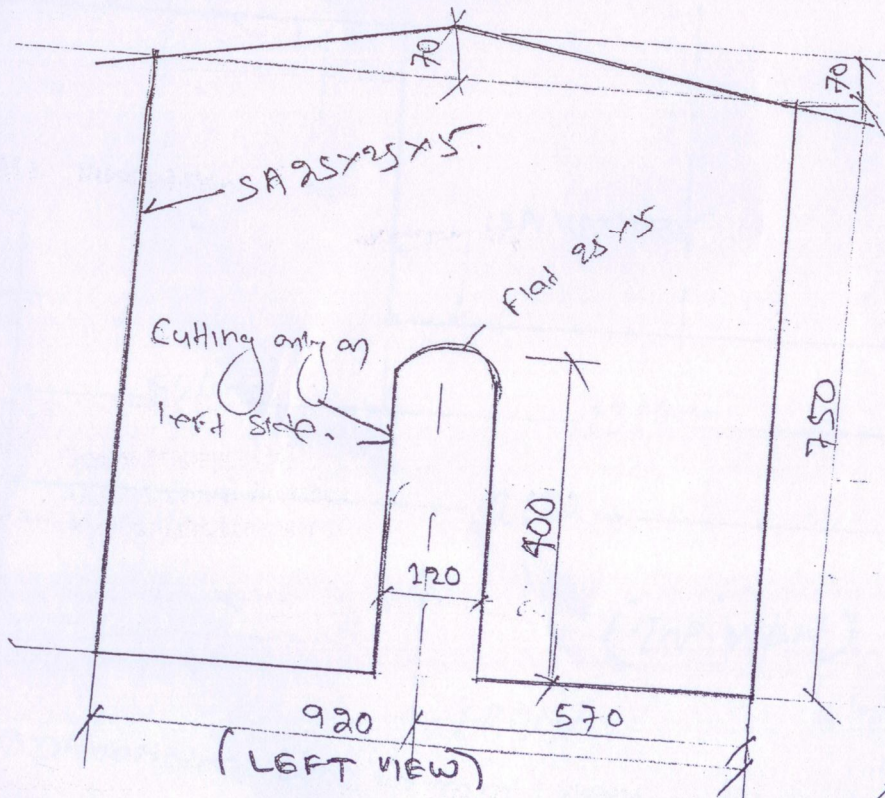 70
70
SA 25×25×5.
Flat 25×5
Cutting only on
Left side.
750
400
120
920
570
(LEFT VIEW)